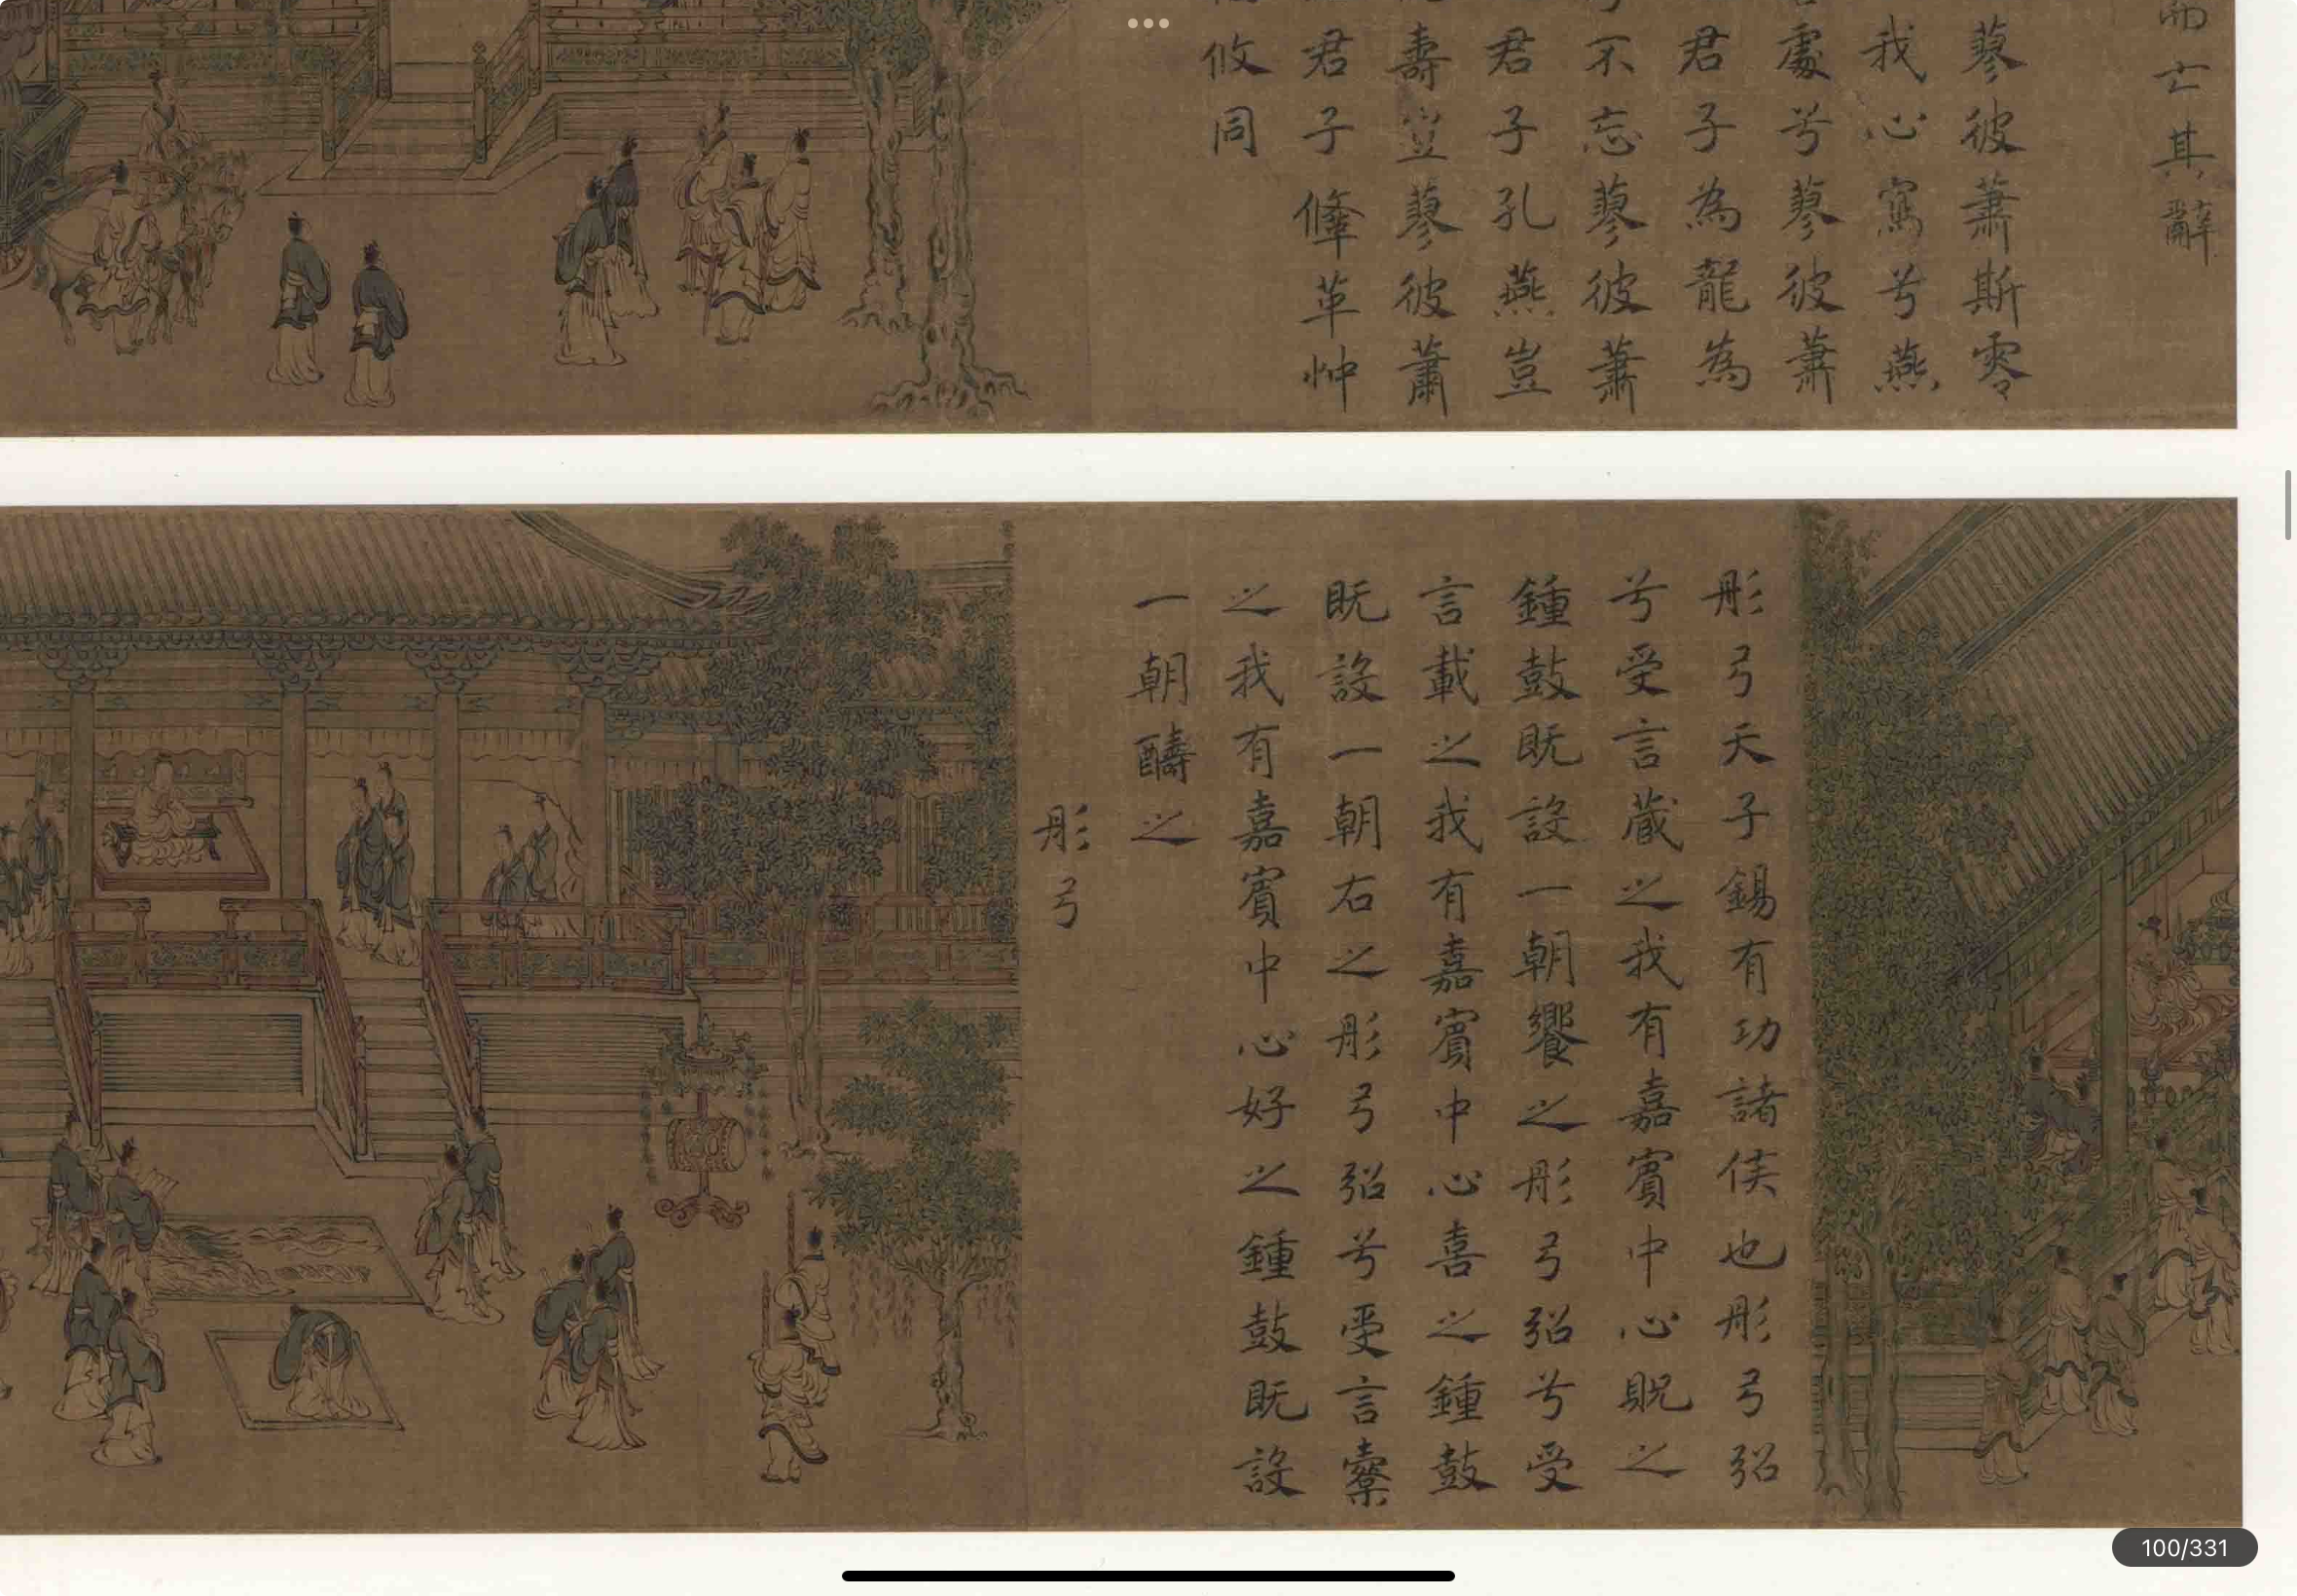 而亡其辭
蓼彼蕭斯零
我心寫兮燕
處兮蓼彼蕭
君子為龍為
不忘蓼彼蕭
君子孔燕豈
壽豈蓼彼蕭
君子鞗革忡
攸同
彤弓天子錫有功諸侯也彤弓弨
兮受言藏之我有嘉賓中心貺之
鍾鼓既設一朝饗之彤弓弨兮受
言載之我有嘉賓中心喜之鍾鼓
既設一朝右之彤弓弨兮受言櫜
之我有嘉賓中心好之鍾鼓既設
一朝醻之
彤弓
100/331